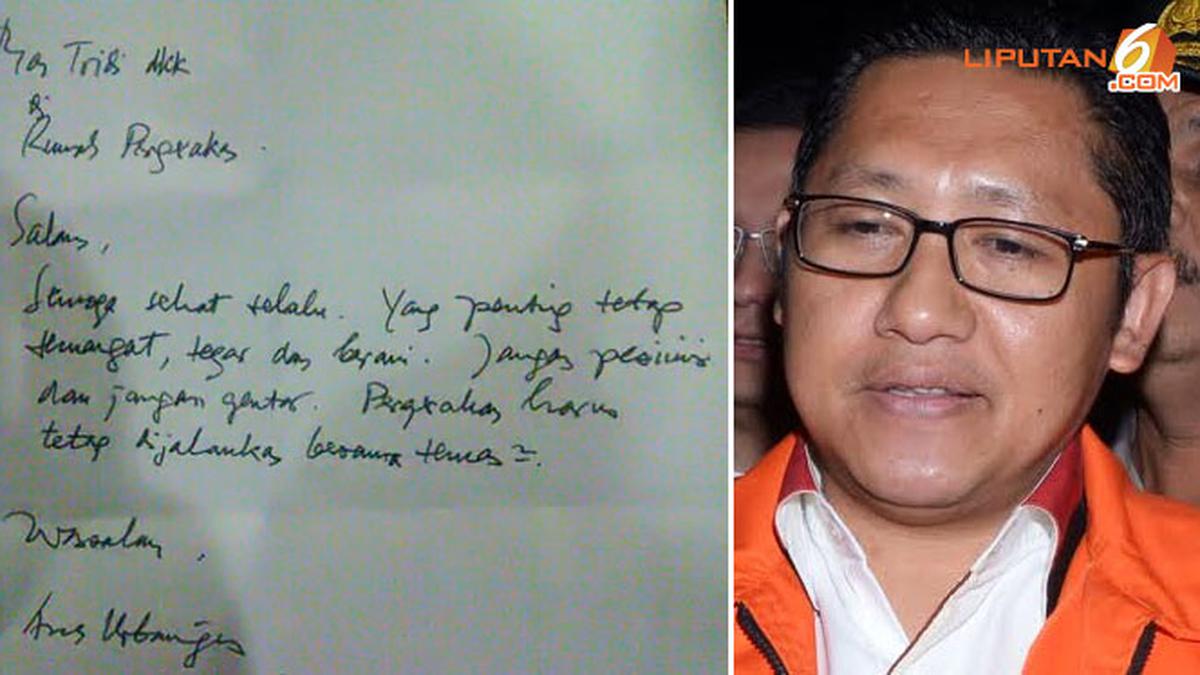 Mas Tridi dkk
di
Rumah Pergerakan.
Salam,
Semoga sehat selalu. Yang penting tetap
semangat, tegar dan berani. Jangan pesimis
dan jangan gentar. Pergerakan harus
tetap dijalankan bersama teman2.
Wassalam,
Anas Urbaningrum
LIPUTAN6
.COM